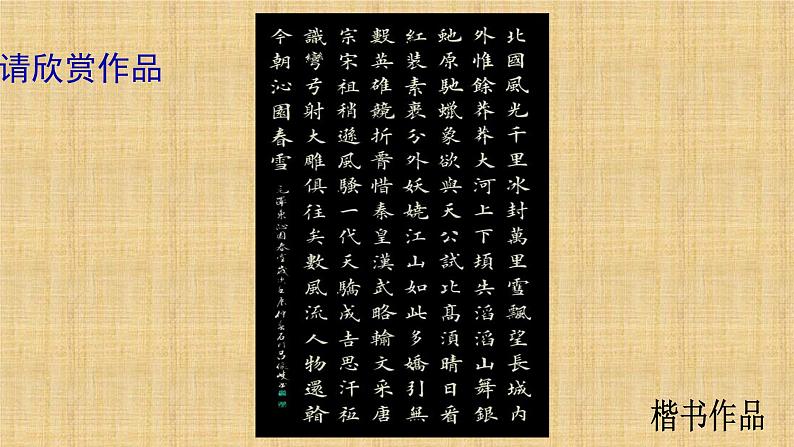 请欣赏作品
北國風光千里冰封萬里雪飄望長城內
外惟餘莽莽大河上下頓失滔滔山舞銀
虵原馳蠟象欲與天公試比髙須晴日看
紅裝素裹分外妖嬈江山如此多嬌引無
數英雄競折腰惜秦皇漢武略輸文采唐
宗宋祖稍遜風騷一代天驕成吉思汗衹
識彎弓射大雕俱往矣數風流人物還看
今朝沁園春雪
毛澤東沁園春雪
楷书作品